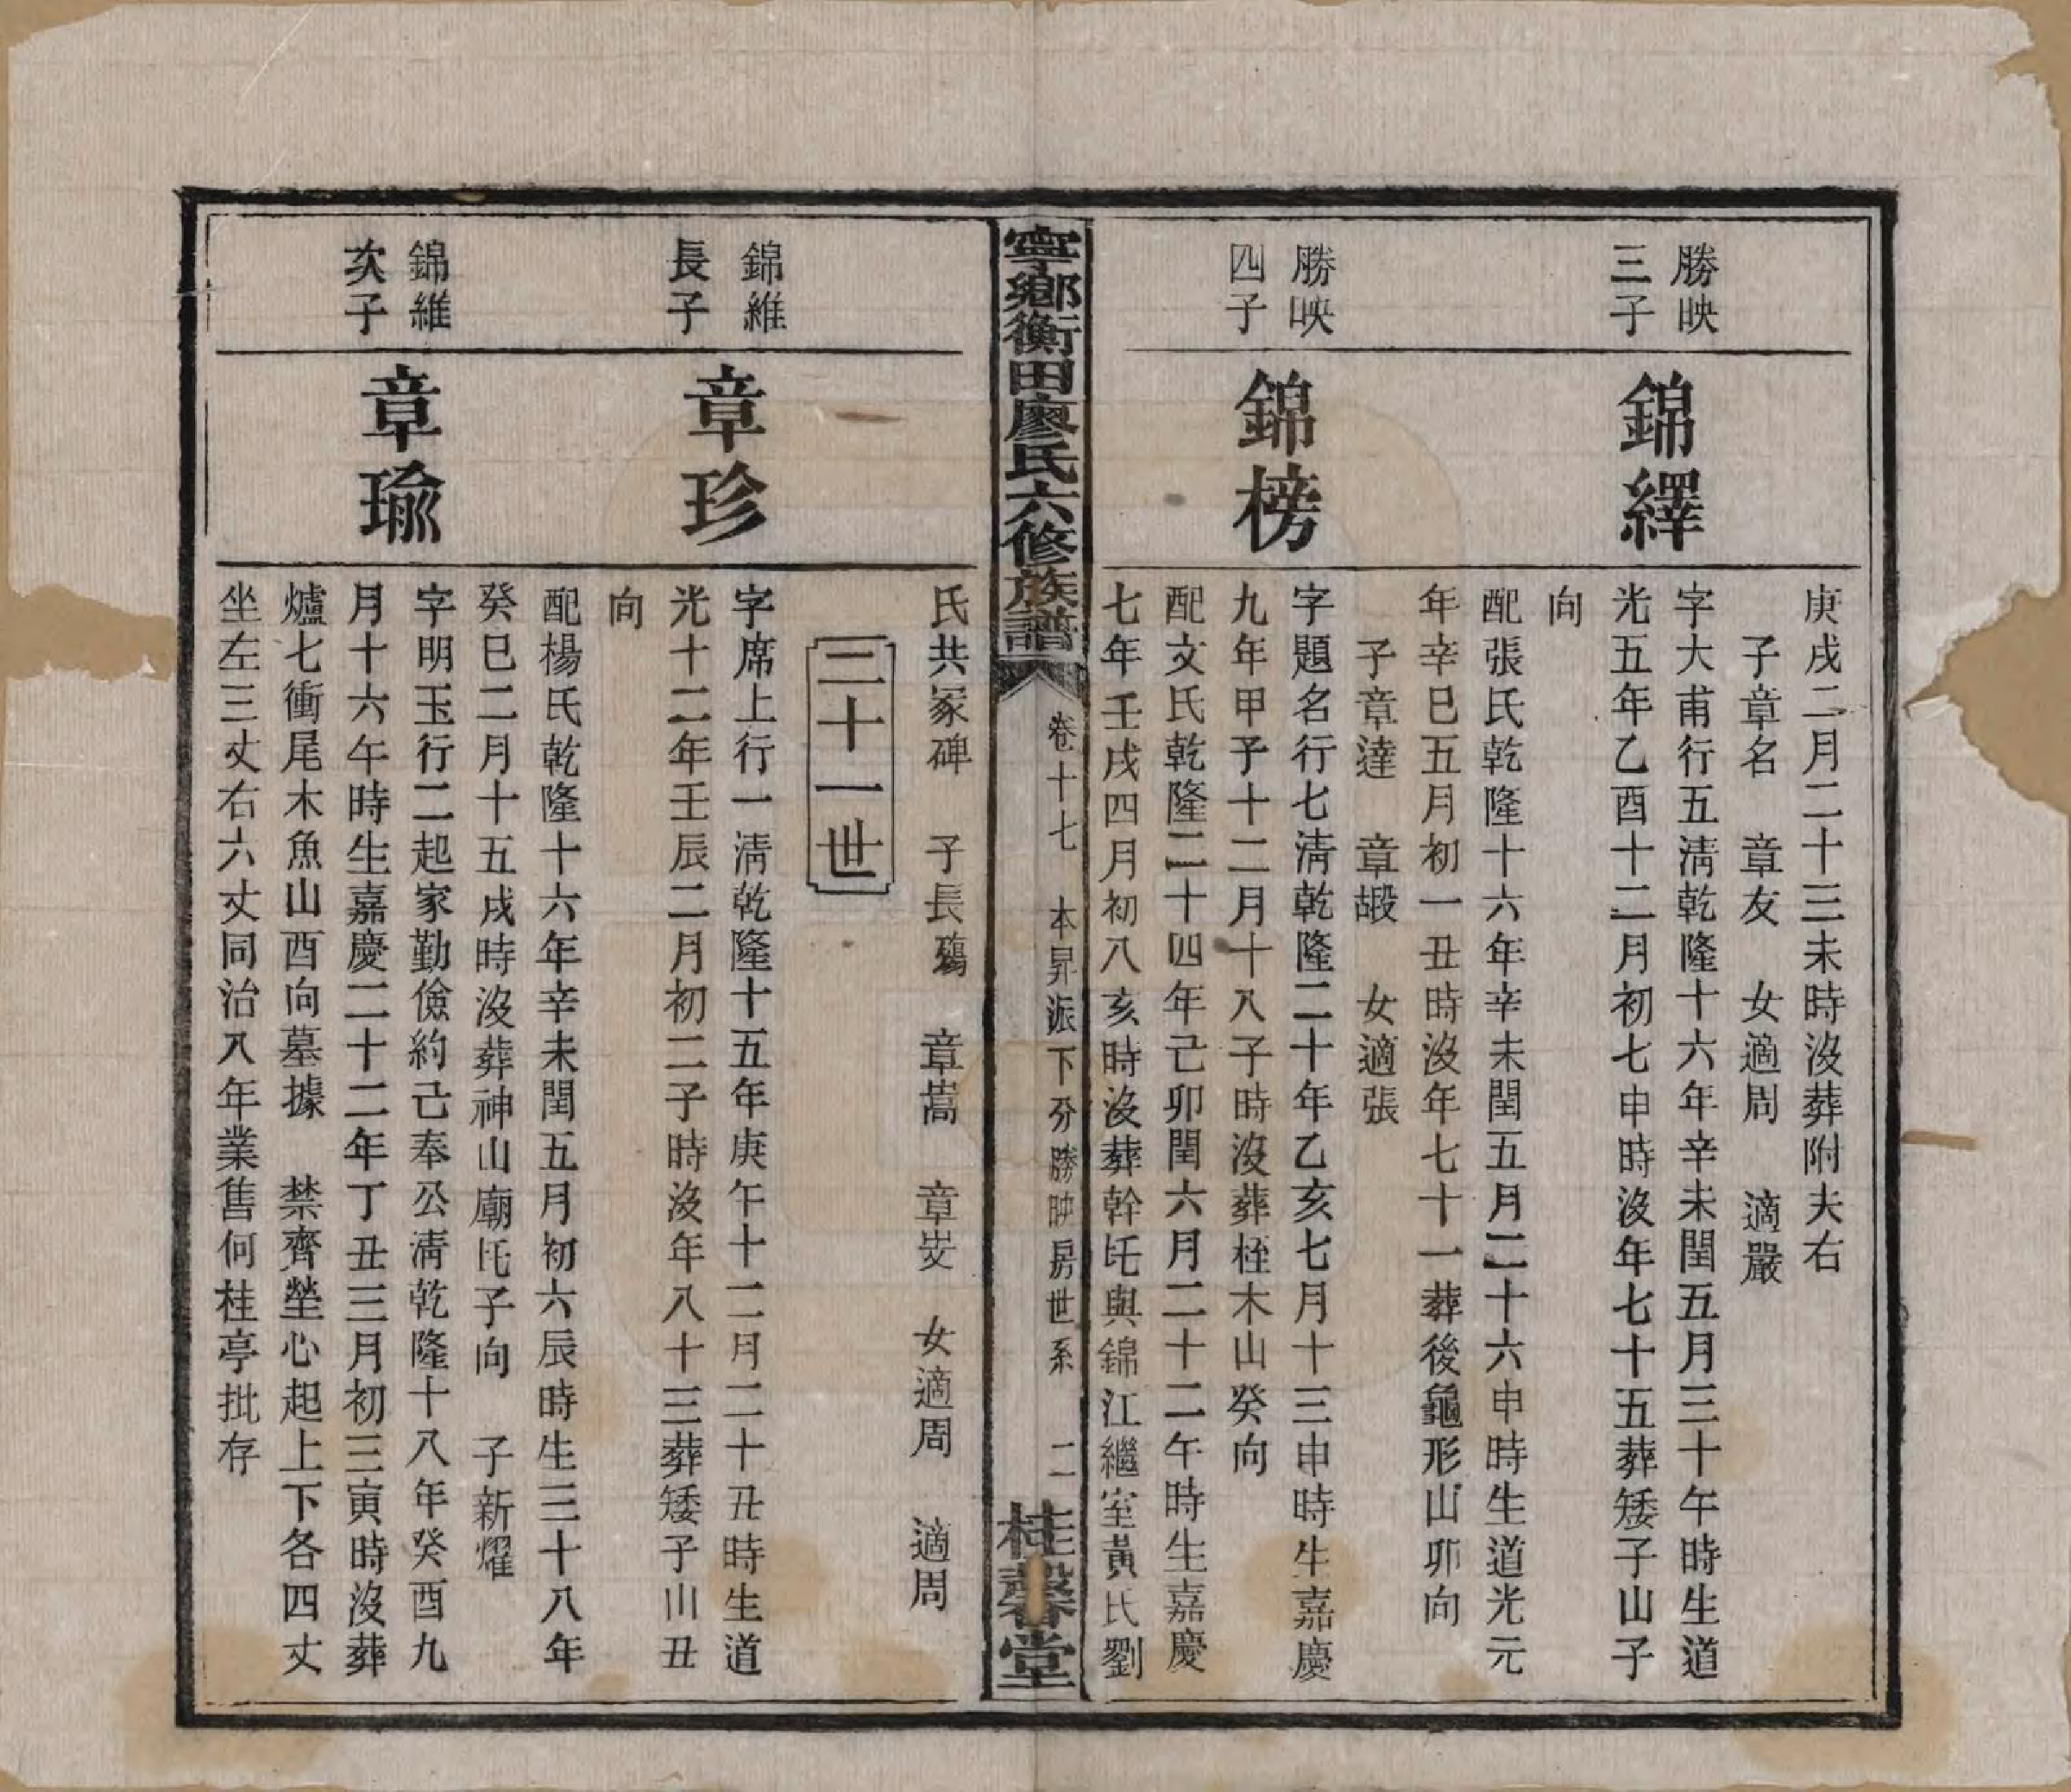 庚戌二月二十三未時沒葬附夫右
子章名　章友　女適周　適嚴
勝映
三子
錦繹
字大甫行五淸乾隆十六年辛未閏五月三十午時生道
光五年乙酉十二月初七申時沒年七十五葬矮子山子
向
配張氏乾隆十六年辛未閏五月二十六申時生道光元
年辛巳五月初一丑時沒年七十一葬後龜形山卯向
子章達　章嘏　女適張
勝映
四子
錦榜
字題名行七淸乾隆二十年乙亥七月十三申時生嘉慶
九年甲子十二月十八子時沒葬桎木山癸向
配文氏乾隆二十四年己卯閏六月二十二午時生嘉慶
七年壬戌四月初八亥時沒葬幹圫與錦江繼室黃氏劉
寧鄉衡田廖氏六修族譜
卷十七　本昇派下分勝映房世系　二
桂馨堂
氏共冢碑　子長殤　章嵩　章㞳　女適周　適周
二十一世
錦維
長子
章珍
字席上行一淸乾隆十五年庚午十二月二十丑時生道
光十二年壬辰二月初二子時沒年八十三葬矮子山丑
向
配楊氏乾隆十六年辛未閏五月初六辰時生三十八年
癸巳二月十五戌時沒葬神山廟圫子向　子新燿
錦維
次子
章瑜
字明玉行二起家勤儉約己奉公淸乾隆十八年癸酉九
月十六午時生嘉慶二十二年丁丑三月初三寅時沒葬
爐七衝尾木魚山酉向墓據　禁齊塋心起上下各四丈
坐左三丈右六丈同治八年業售何桂亭批存